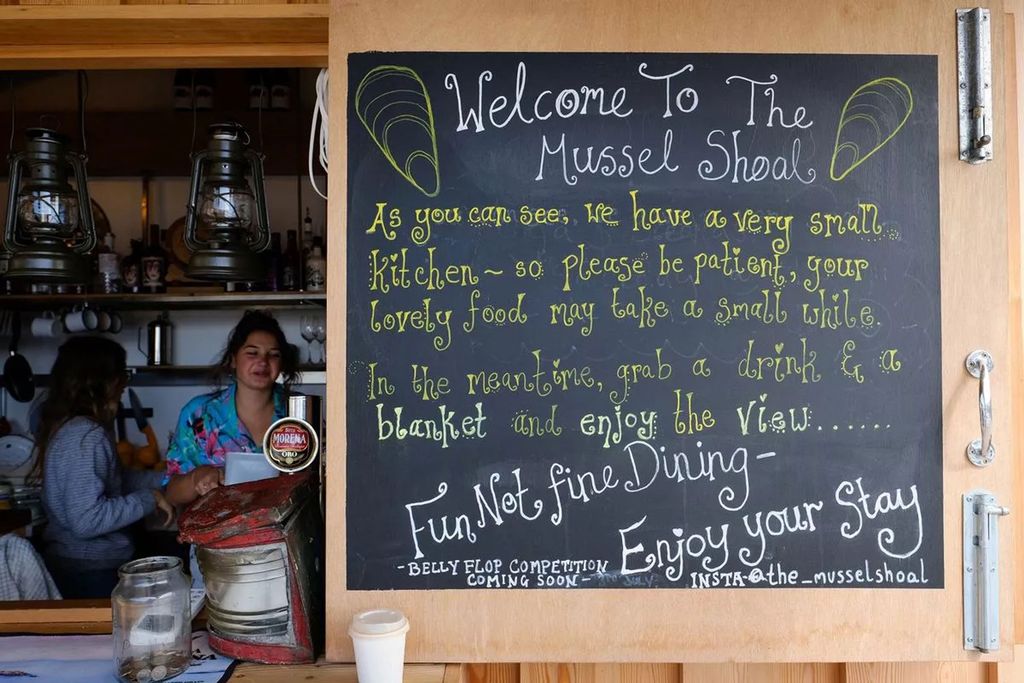 Welcome To The
Mussel Shoal
As you can see, we have a very small
kitchen ~ so please be patient, your
lovely food may take a small while.
In the meantime, grab a drink & a
blanket and enjoy the view......
Fun Not fine Dining -
Enjoy your Stay
- BELLY FLOP COMPETITION
COMING SOON -
INSTA-@the_musselshoal
BIRRA
MORENA
ORO